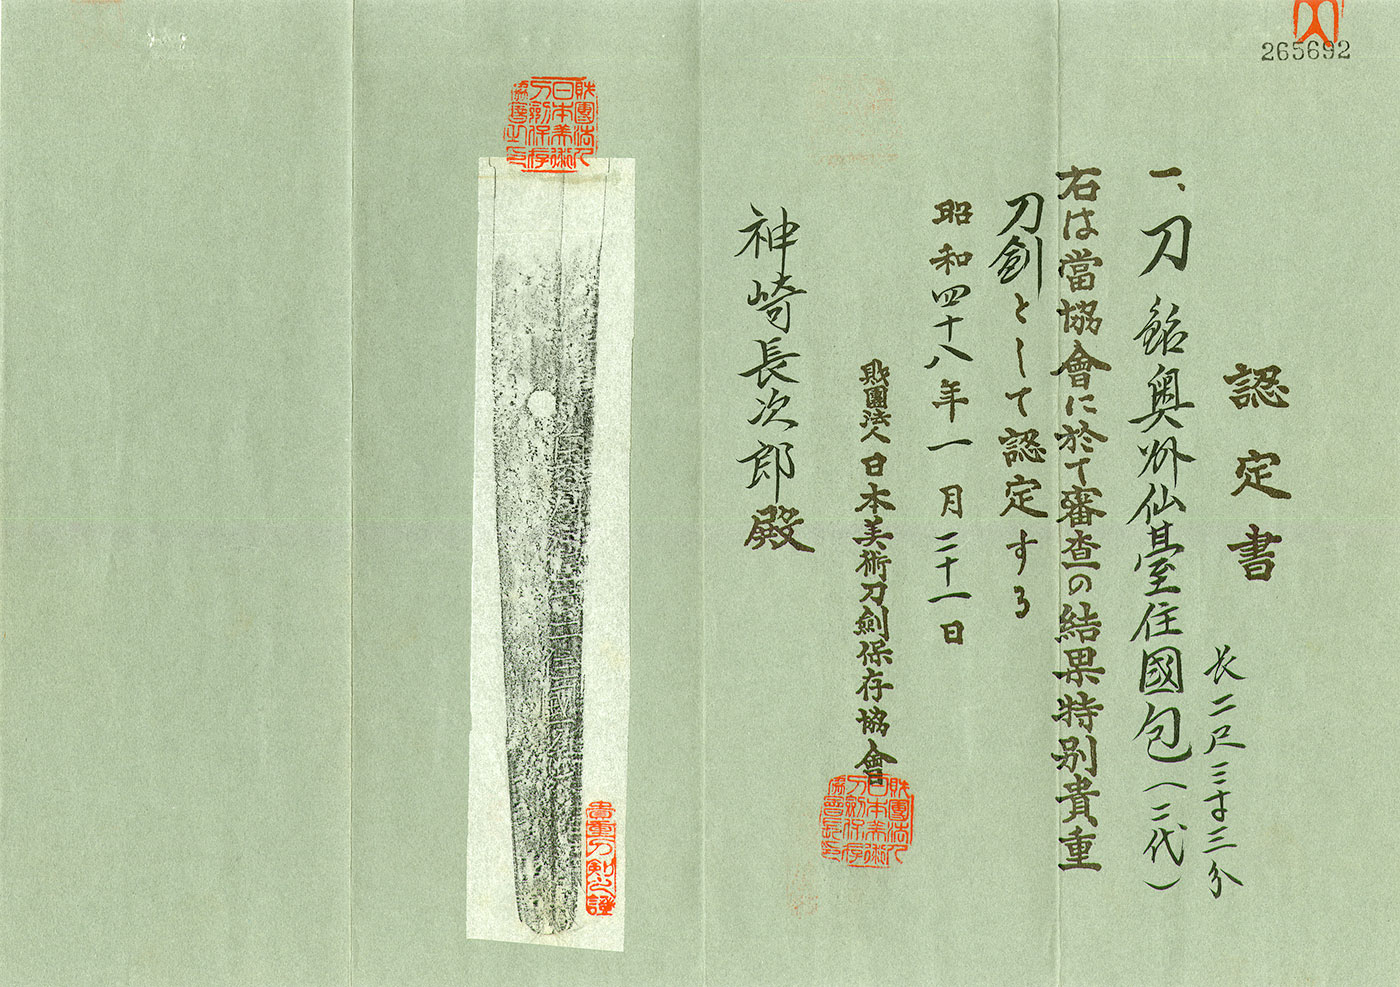 265692
認定書
長二尺三寸三分
一、刀 銘奥州仙臺住國包(二代)
右は當協會に於て審査の結果特別貴重
刀劍として認定する
昭和四十八年一月二十一日
財團法人日本美術刀劍保存協會
神崎長次郎殿
財團法人
日本美術
刀劍保存
貴重刀剣之證
財團法人
日本美術
刀劍保存
協會長印